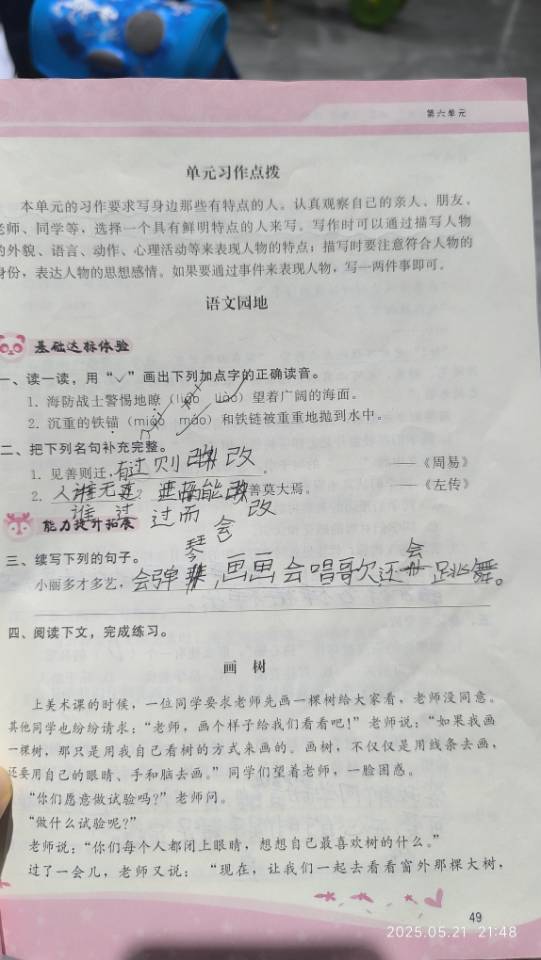 第六单元
单元习作点拨
本单元的习作要求写身边那些有特点的人。认真观察自己的亲人、朋友、
老师、同学等，选择一个具有鲜明特点的人来写。写作时可以通过描写人物
的外貌、语言、动作、心理活动等来表现人物的特点；描写时要注意符合人物的
身份，表达人物的思想感情。如果要通过事件来表现人物，写一两件事即可。
语文园地
基础达标体验
一、读一读，用“√”画出下列加点字的正确读音。
1. 海防战士警惕地瞭（liáo liào）望着广阔的海面。
2. 沉重的铁锚（miáo máo）和铁链被重重地抛到水中。
二、把下列名句补充完整。
1. 见善则迁，有过则改 。 ——《周易》
2. 人谁无过？过而能改善莫大焉。 ——《左传》
谁 过 过而 会 改
能力提升拓展
三、续写下列的句子。
小丽多才多艺，会弹琴，画画会唱歌还会跳舞。
四、阅读下文，完成练习。
画 树
上美术课的时候，一位同学要求老师先画一棵树给大家看，老师没同意。
其他同学也纷纷请求：“老师，画个样子给我们看看吧！”老师说：“如果我画
一棵树，那只是用我自己看树的方式来画的。画树，不仅仅是用线条去画，
还要用自己的眼睛、手和脑去画。”同学们望着老师，一脸困惑。
“你们愿意做试验吗？”老师问。
“做什么试验呢？”
老师说：“你们每个人都闭上眼睛，想想自己最喜欢树的什么。”
过了一会儿，老师又说：“现在，让我们一起去看看窗外那棵大树，
49
2025.05.21 21:48